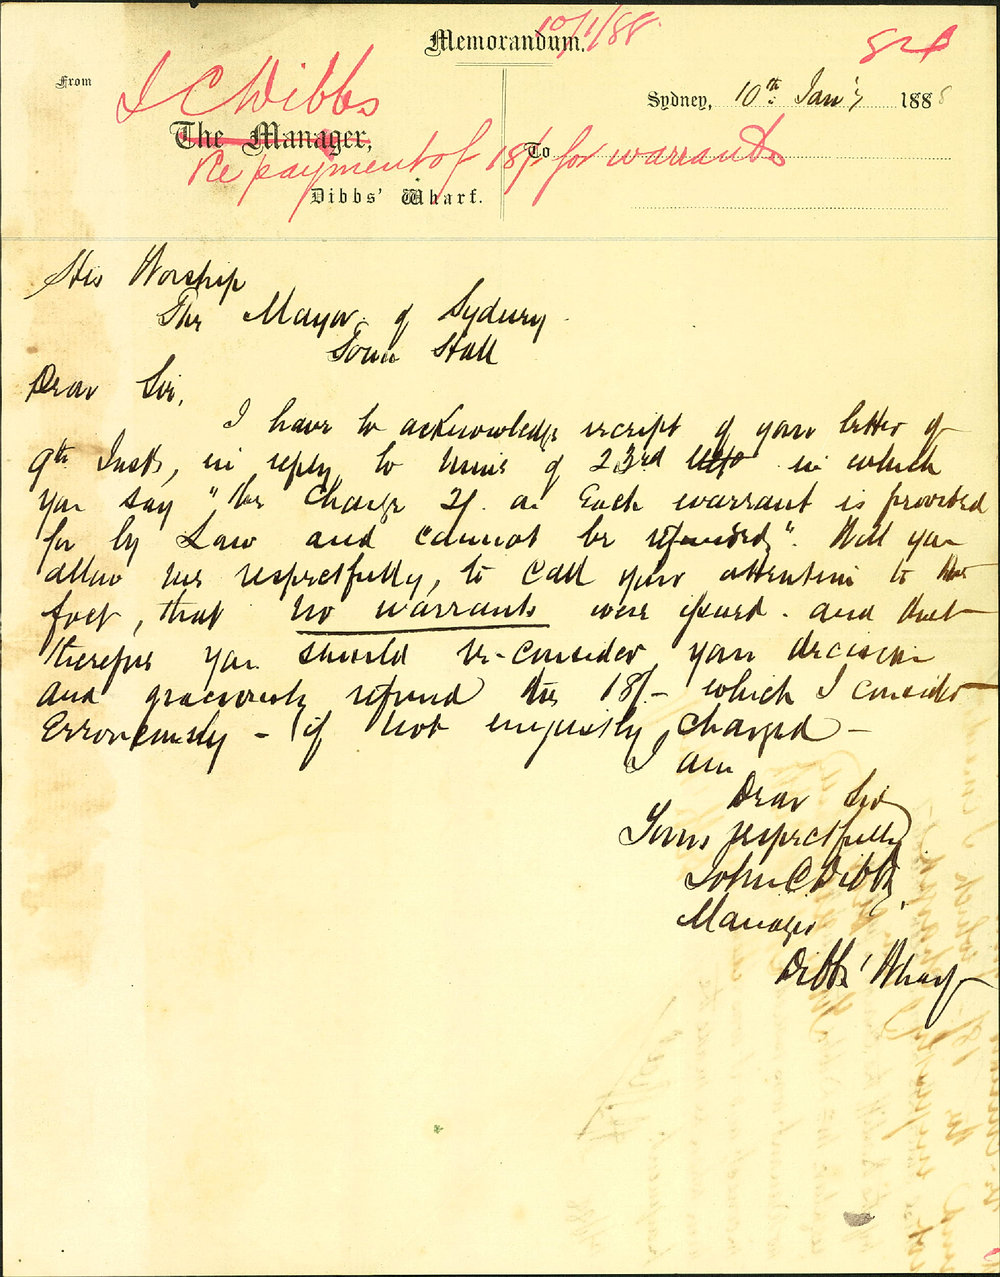 Memorandum.
10/1/88
821
From
J C Dibbs
Sydney, 10th Jany 1888
The Manager,
Re payment of 18/- for warrants
To
Dibbs' Wharf.
His Worship
The Mayor of Sydney
Town Hall
Dear Sir,
I have to acknowledge receipt of your letter of
9th Inst, in reply to mine of 23rd in which
you say "the charge 2/. on Each warrant is provided
for by Law and cannot be refunded". Will you
allow me respectfully, to call your attention to the
fact, that no warrants were issued - and that
therefore you should re-consider your decision
and graciously refund the 18/- which I consider
Erroneously - if not unjustly charged -
I am
Dear Sir
Yours respectfully
John C Dibbs
Manager
Dibbs' Wharf